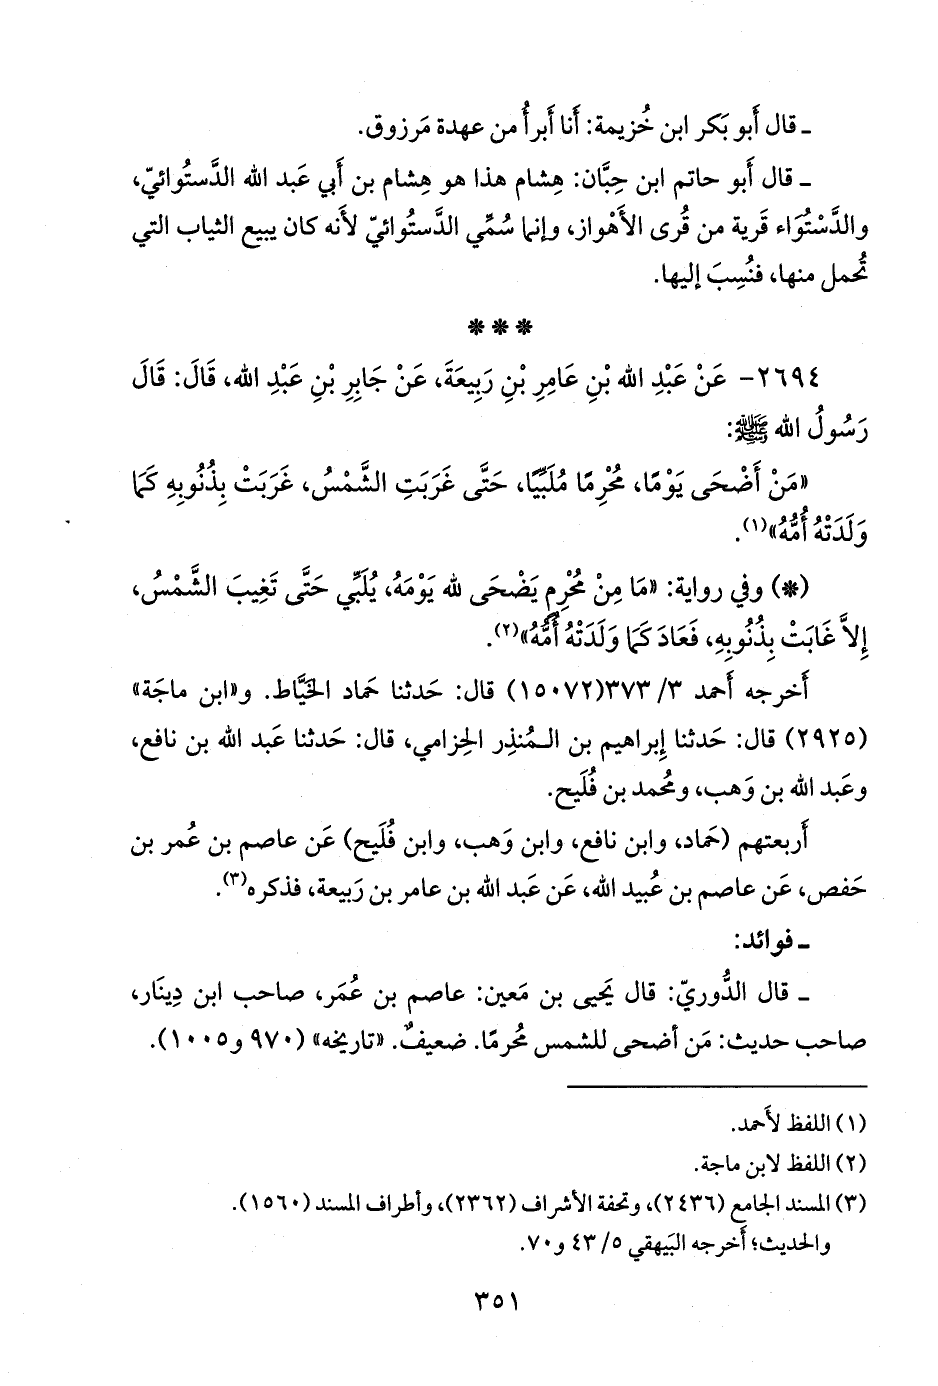 ـ قال أَبو بَكر ابن خُزيمة: أَنا أَبرأُ من عهدة مَرزوق.
ـ قال أَبو حاتم ابن حِبَّان: هِشام هذا هو هِشام بن أَبي عَبد الله الدَّستُوائيّ،
والدَّسْتُوَاء قَرية من قُرى الأَهْواز، وإنما سُمِّي الدَّستُوائيّ لأَنه كان يبيع الثياب التي
تُحمل منها، فنُسِبَ إليها.
***
٢٦٩٤- عَنْ عَبْدِ الله بْنِ عَامِرِ بْنِ رَبِيعَةَ، عَنْ جَابِرِ بْنِ عَبْدِ الله، قَالَ: قَالَ
رَسُولُ الله ﷺ:
«مَنْ أَضْحَى يَوْمًا، مُحْرِمًا مُلَبِّيًا، حَتَّى غَرَبَتِ الشَّمْسُ، غَرَبَتْ بِذُنُوبِهِ كَمَا
وَلَدَتْهُ أُمُّهُ»(١).
(*) وفي رواية: «مَا مِنْ مُحْرِمٍ يَضْحَى لله يَوْمَهُ، يُلَبِّي حَتَّى تَغِيبَ الشَّمْسُ،
إِلاَّ غَابَتْ بِذُنُوبِهِ، فَعَادَ كَمَا وَلَدَتْهُ أُمُّهُ»(٢).
أَخرجه أَحمد ٣/ ٣٧٣(١٥٠٧٢) قال: حَدثنا حَماد الخَيَّاط. و«ابن ماجَة»
(٢٩٢٥) قال: حَدثنا إِبراهيم بن المُنذِر الحِزامي، قال: حَدثنا عَبد الله بن نافع،
وعَبد الله بن وَهب، ومُحمد بن فُلَيح.
أَربعتهم (حَماد، وابن نافع، وابن وَهب، وابن فُلَيح) عَن عاصم بن عُمر بن
حَفص، عَن عاصم بن عُبيد الله، عَن عَبد الله بن عامر بن رَبيعة، فذكره(٣).
ـ فوائد:
ـ قال الدُّوريّ: قال يَحيى بن مَعين: عاصم بن عُمَر، صاحب ابن دِينَار،
صاحب حديث: مَن أضحى للشمس مُحرمًا. ضعيفٌ. «تاريخه» (٩٧٠ و١٠٠٥).
(١) اللفظ لأَحمد.
(٢) اللفظ لابن ماجة.
(٣) المسند الجامع (٢٤٣٦)، وتحفة الأشراف (٢٣٦٢)، وأطراف المسند (١٥٦٠).
والحديث؛ أَخرجه البَيهقي ٥/ ٤٣ و٧٠.
٣٥١